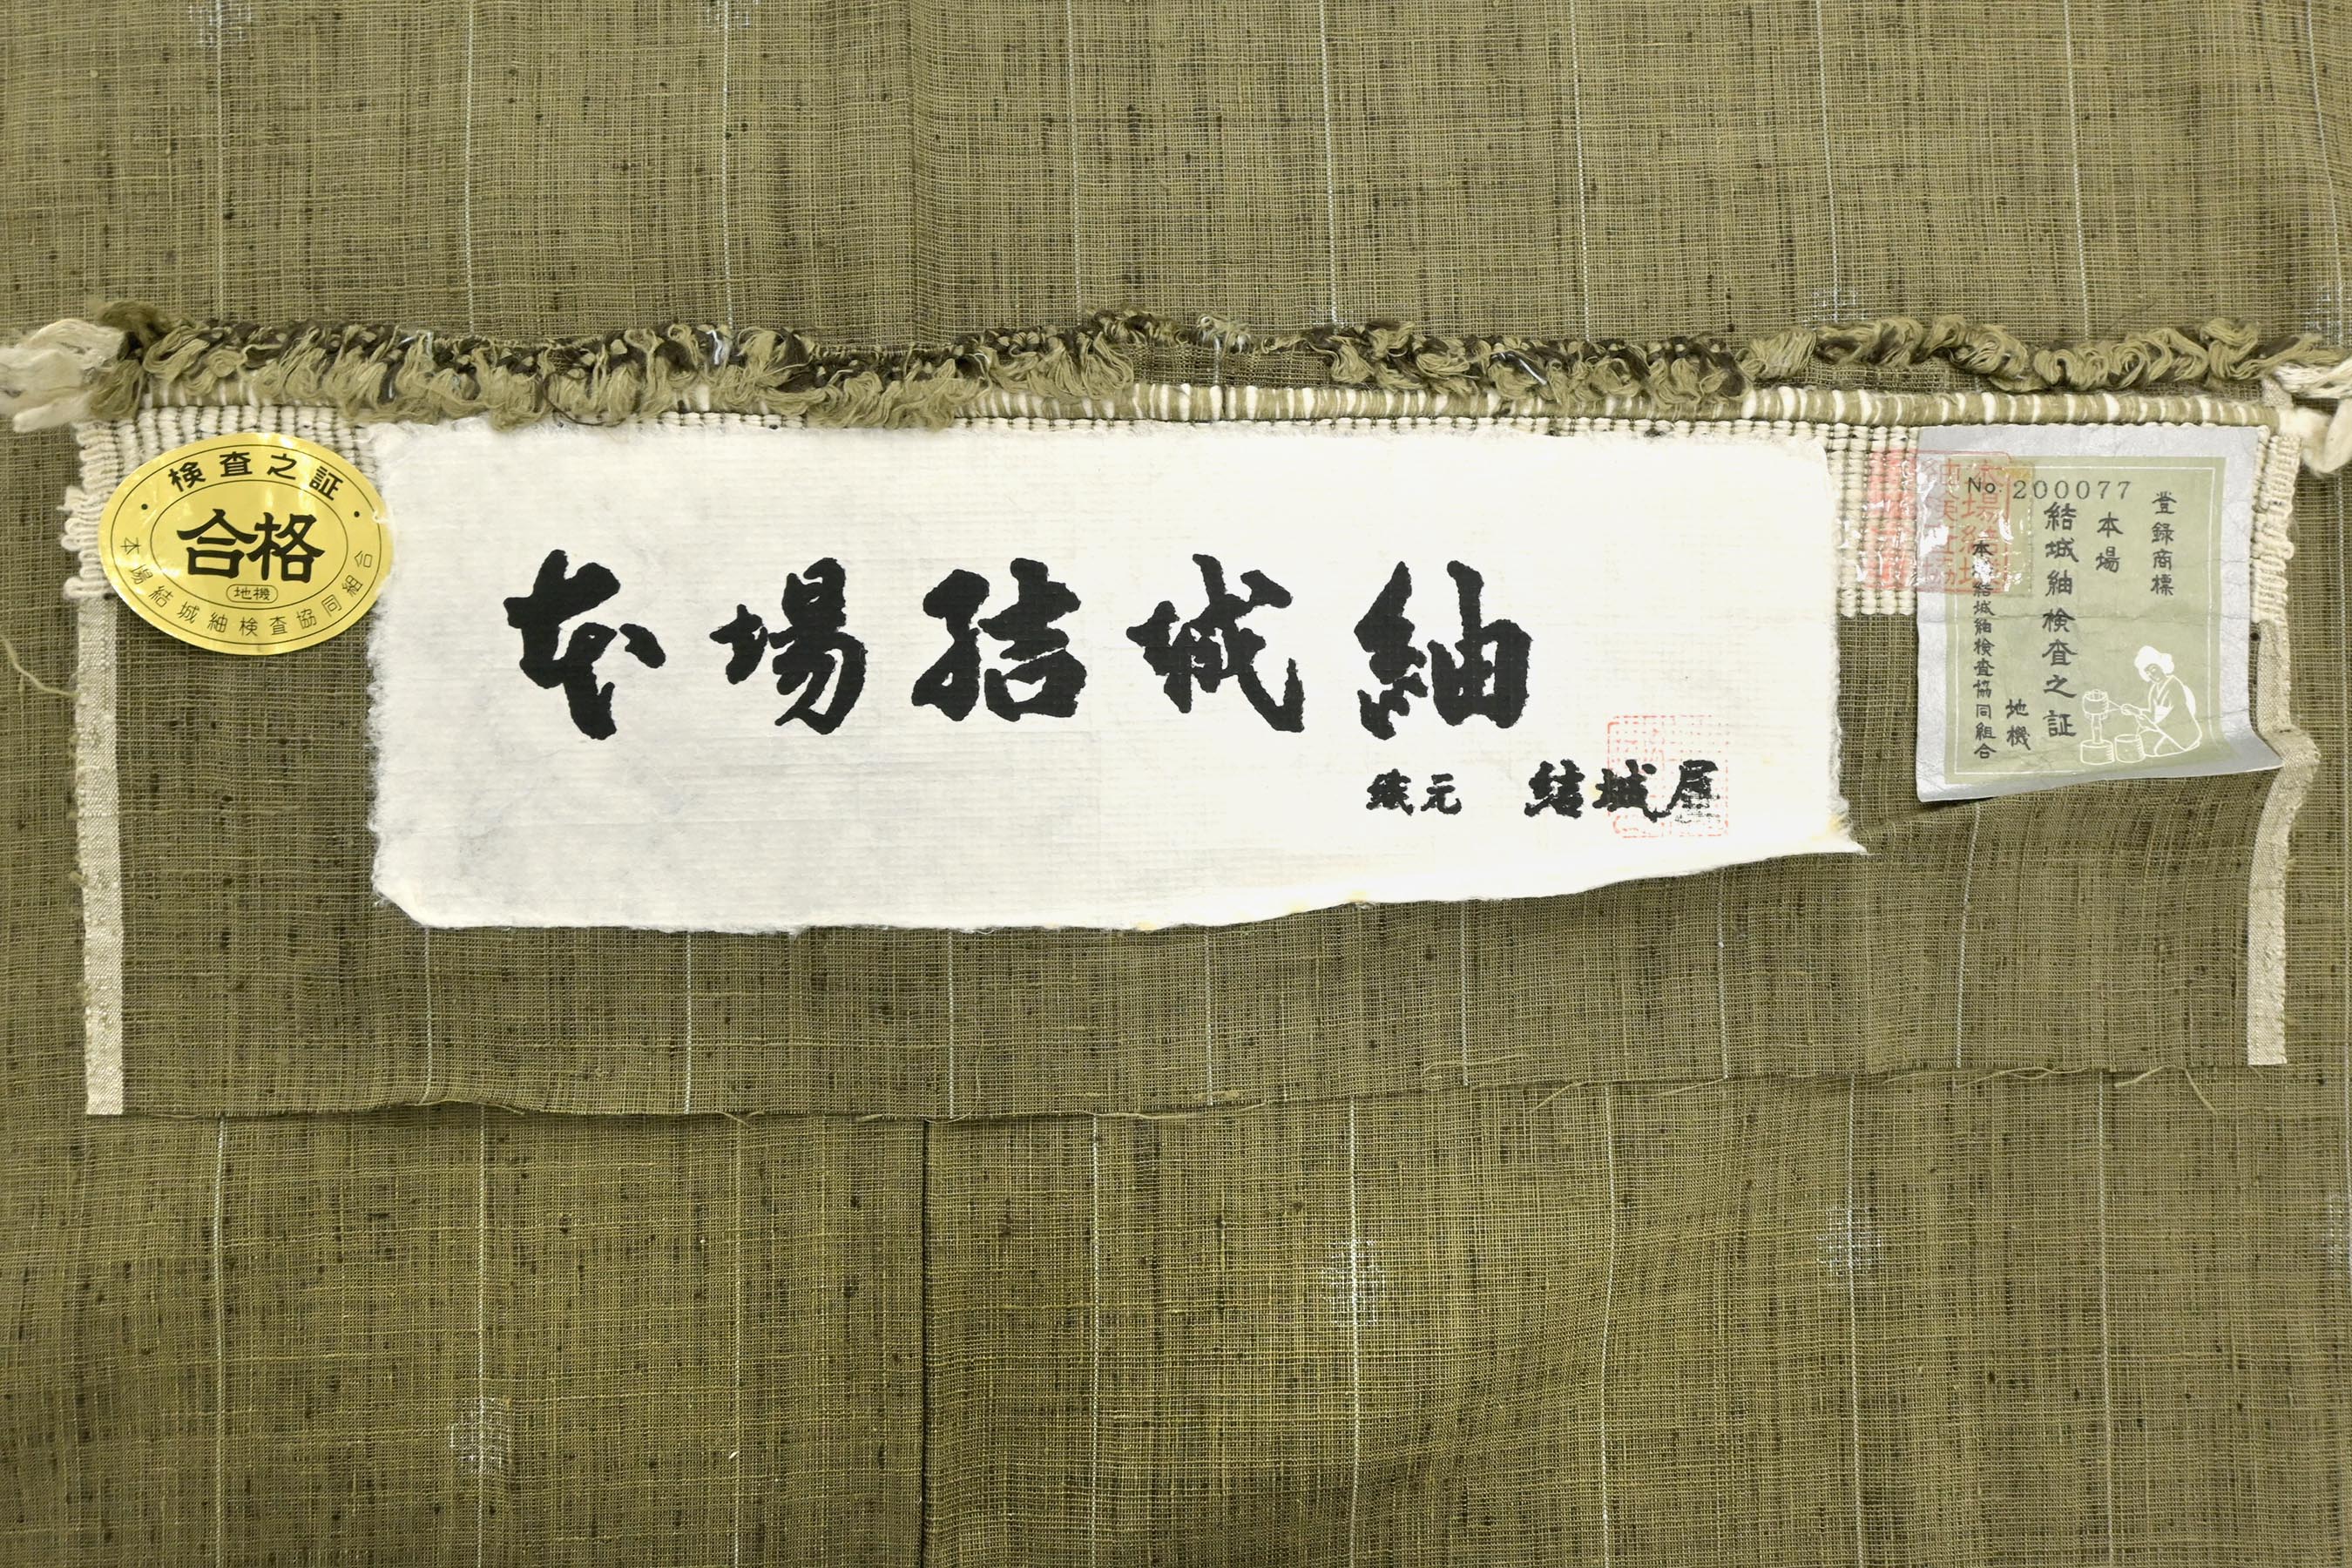 検査之証
合格
地機
本場結城紬検査協同組合
本場結城紬
織元 結城屋
No. 200077
登録商標
本場
結城紬検査之証
地機
本場結城紬検査協同組合